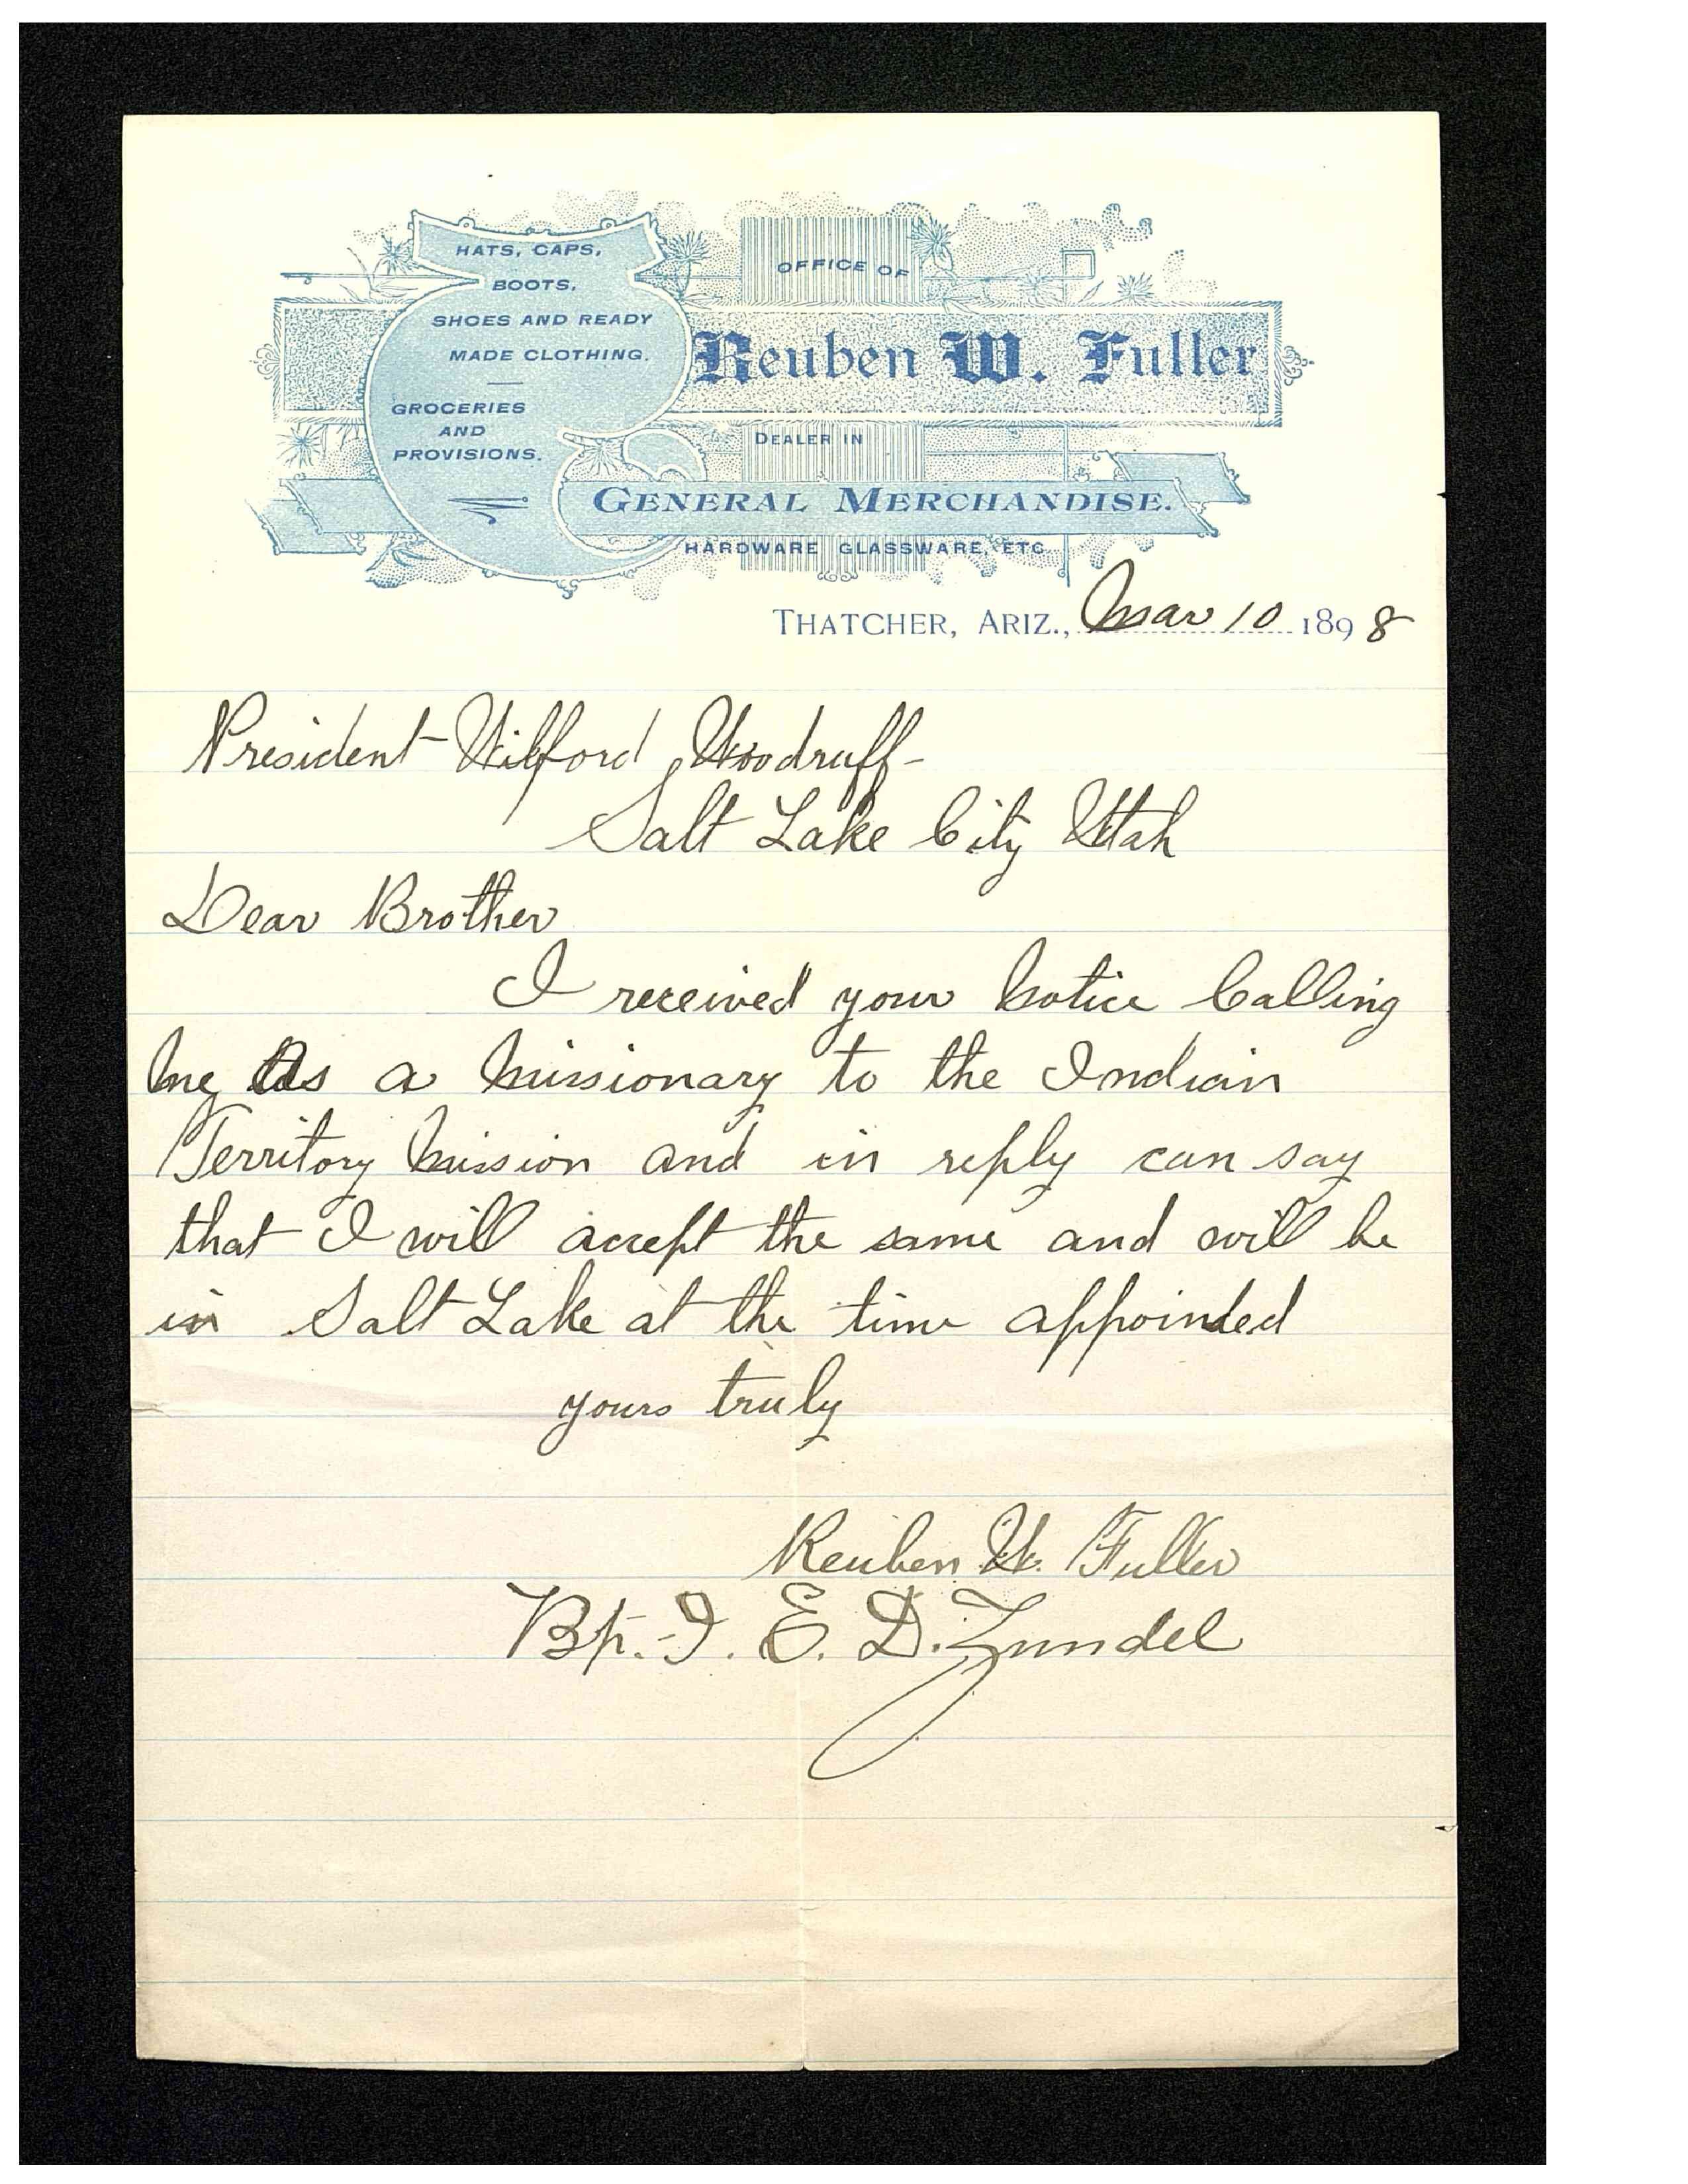 HATS, CAPS,
BOOTS,
SHOES AND READY
MADE CLOTHING.
GROCERIES
AND
PROVISIONS.
OFFICE OF
Reuben W. Fuller
DEALER IN
GENERAL MERCHANDISE.
HARDWARE GLASSWARE, ETC.
THATCHER, ARIZ., Mar 10 1898
President Wilford Woodruff
Salt Lake City Utah
Dear Brother
I received your Notice Calling
me As a Missionary to the Indian
Territory Mission and in reply can say
that I will accept the same and will be
in Salt Lake at the time appointed
yours truly
Reuben W. Fuller
Bp. I. E. D. Zundel